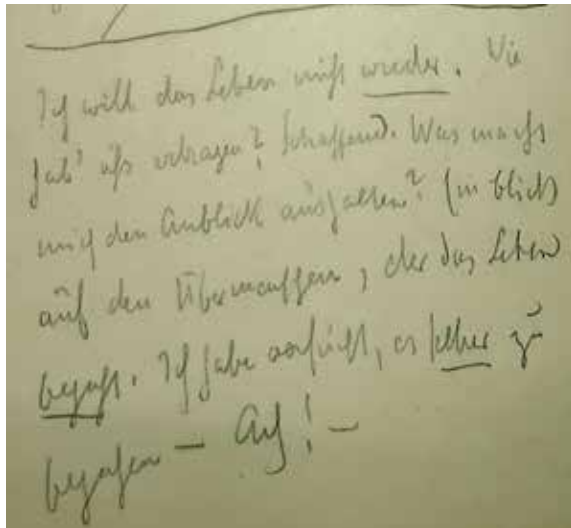 Ich will das Leben nicht wieder. Wie
hab' ich's ertragen? Schaffend. Was macht
mich den Anblick aushalten? Der Blick
auf den Übermenschen, der das Leben
bejaht. Ich habe versucht, es selber zu
bejahen — Ach! —